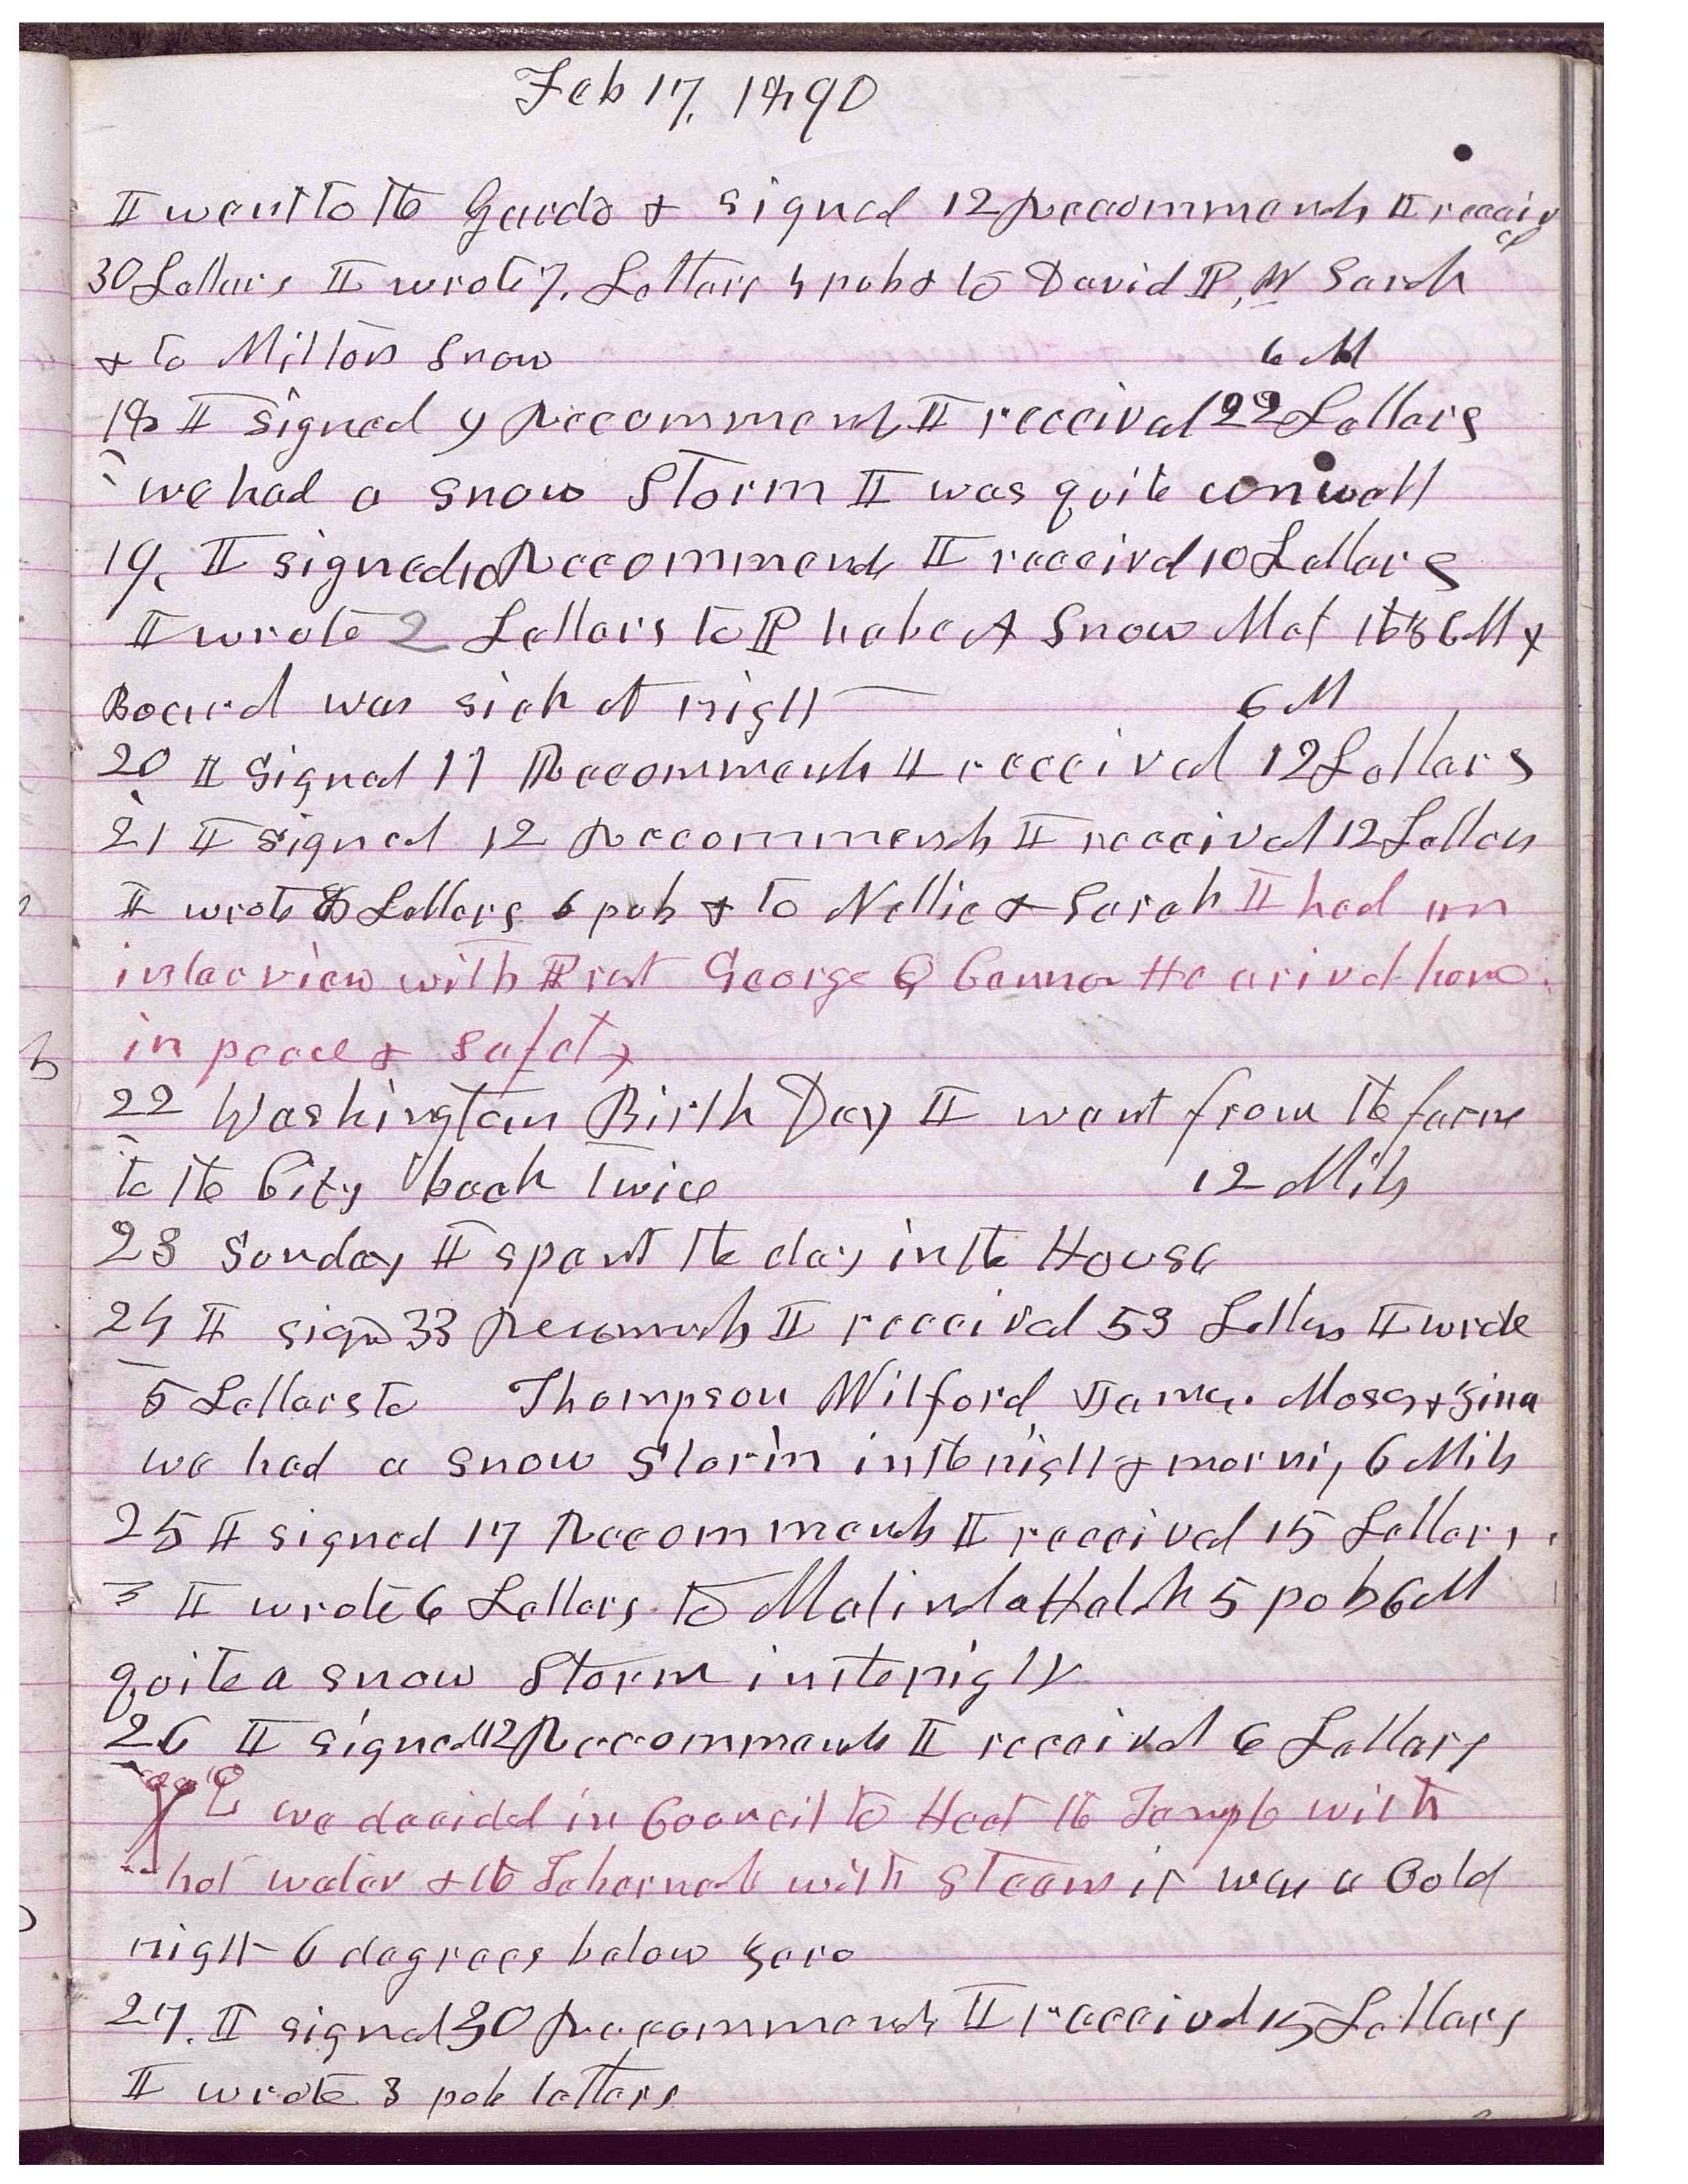 Feb 17, 1890
I went to the Gardo & signed 12 Recommends I receiv
ed
30 Letters I wrote 7. Letters 4 pub & to David P, W Sarah
& to Milton Snow 6 M
18 I signed 9 Recommends I received 22 Letters
we had a snow Storm I was quite unwell
19. I signed 10 Recommends I receivd 10 Letters
I wrote 2 Letters to Phebe A Snow 6 M &
Board was sick at night 6 M
20 I signed 11 Recommends I received 12 Letters
21 I signed 12 Recommends I received 12 Letters
I wrote 8 Letters 6 pub & to Nellie & Sarah I had an
interview with Prest George Q Cannon He arivd home
in peace & safety
22 Washington Birth Day I went from the farm
to the City & back Twice 12 Mils
23 Sunday I spent the day in the House
24 I sign 33 Recomends I received 53 Letters I wrote
5 Letters to Thompson Wilford James. Moses & Zina
we had a snow storm in the night & morni, 6 Mils
25 I signed 17 Recommends I received 15 Letters.
I wrote 6 Letters to Malinda Hatch 5 pub 6 M
quite a snow Storm in the night
26 I signed 12 Recommends I receivd 6 Letters
we decided in Council to Heat the Temple with
hot water & the Tabernacle with steam it was a Cold
night 6 degrees below zero
27. I signed 30 Recommends I receivd 15 Letters
I wrote 3 pub letters